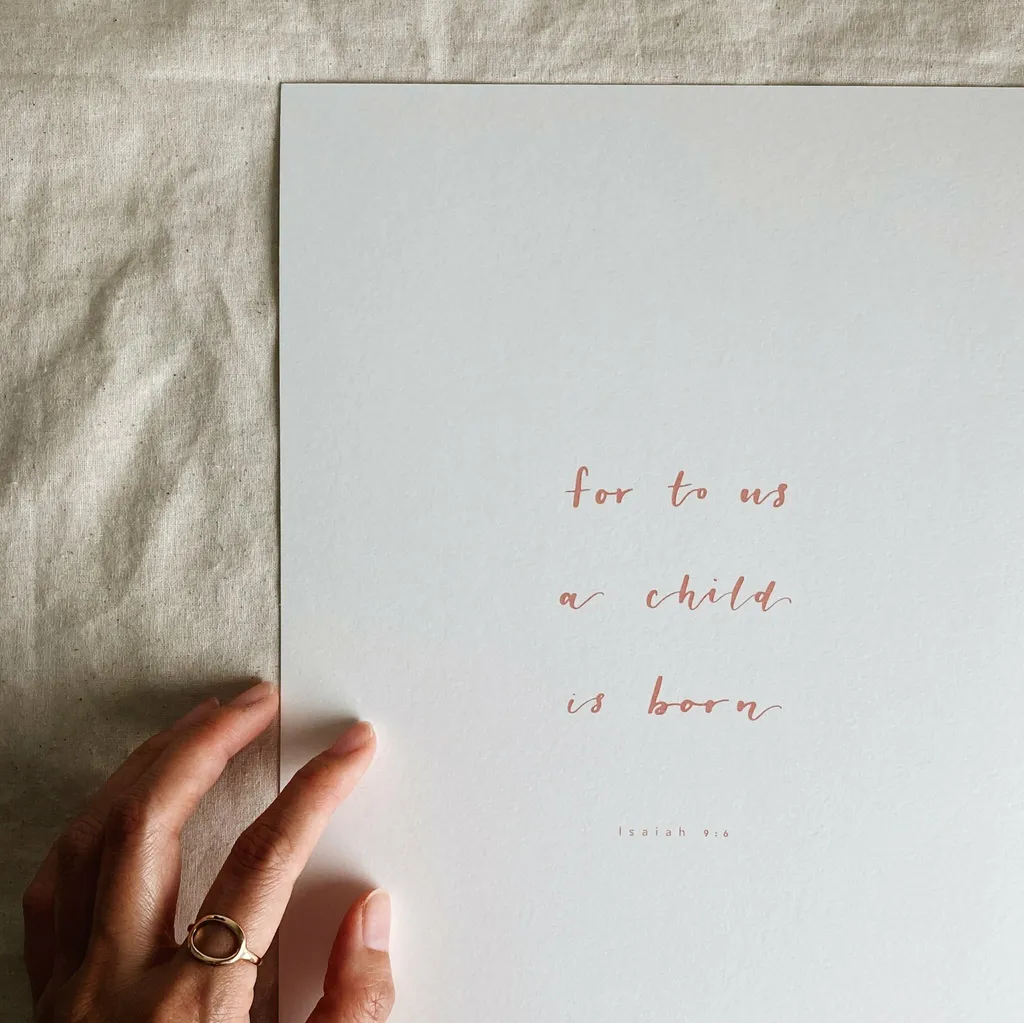 for to us
a child
is born
Isaiah 9:6